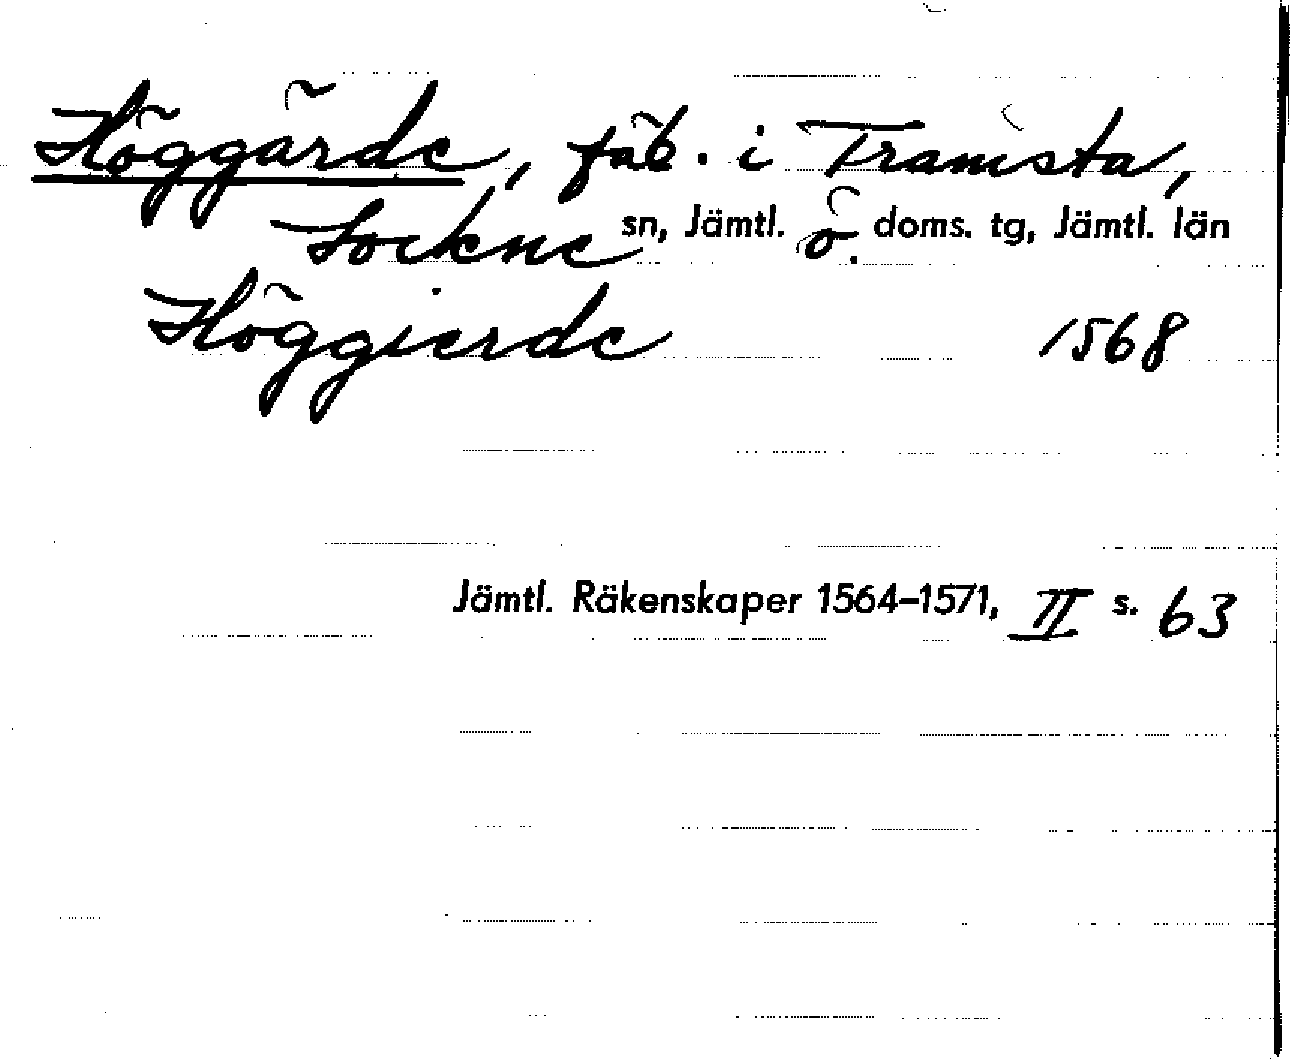 Höggärde, fäb. i Tramsta,
Sockne sn, Jämtl. ö. doms. tg, Jämtl. län
Höggierde 1568
Jämtl. Räkenskaper 1564–1571, II s. 63